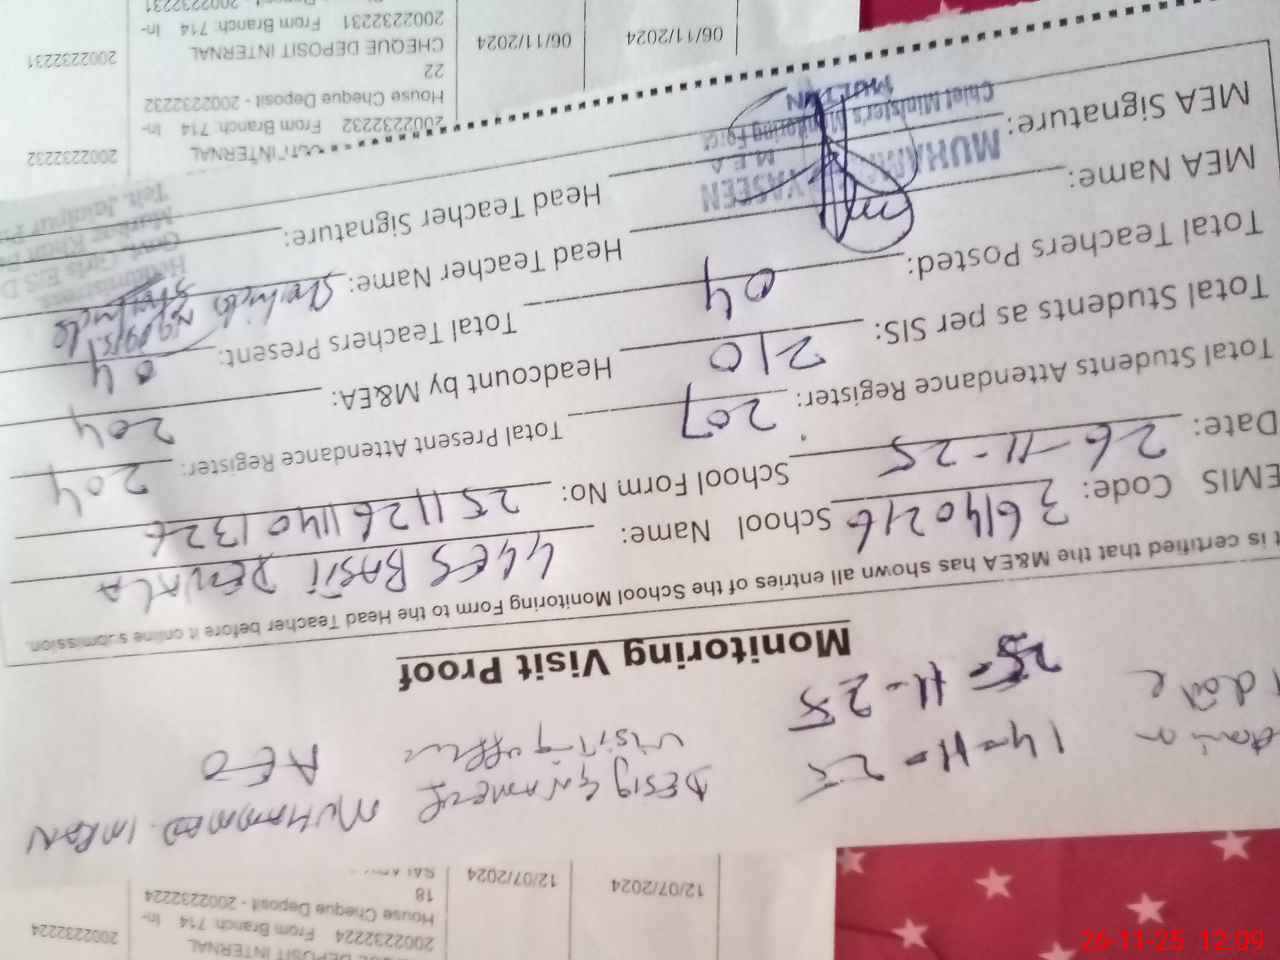 12/07/2024 12/07/2024 2002232224
2002232224 From Branch. 714 In-
House Cheque Deposit - 2002232224
18
MUHAMMAD IMRAN
AEO
14-11-25
date 25-11-25
Monitoring Visit Proof
t is certified that the M&EA has shown all entries of the School Monitoring Form to the Head Teacher before it online submission.
EMIS Code: 36140216 School Name: GGES BASTI DEWALA
Date: 26-11-25 School Form No: 25112611401326
Total Students Attendance Register: 207 Total Present Attendance Register: 204
Total Students as per SIS: 210 Headcount by M&EA: 204
Total Teachers Posted: 04 Total Teachers Present: 04
MEA Name: Head Teacher Name:
MEA Signature: Head Teacher Signature:
YASEEN
M.E.A
Chief Minister's Monitoring Force
MULTAN
Headmistress
Govt. Girls E/S
Teh. Jampur
INTERNAL 2002232232
2002232232 From Branch. 714 In-
House Cheque Deposit - 2002232232
22
06/11/2024 06/11/2024 CHEQUE DEPOSIT INTERNAL 2002232231
2002232231 From Branch. 714 In-
26-11-25 12:09